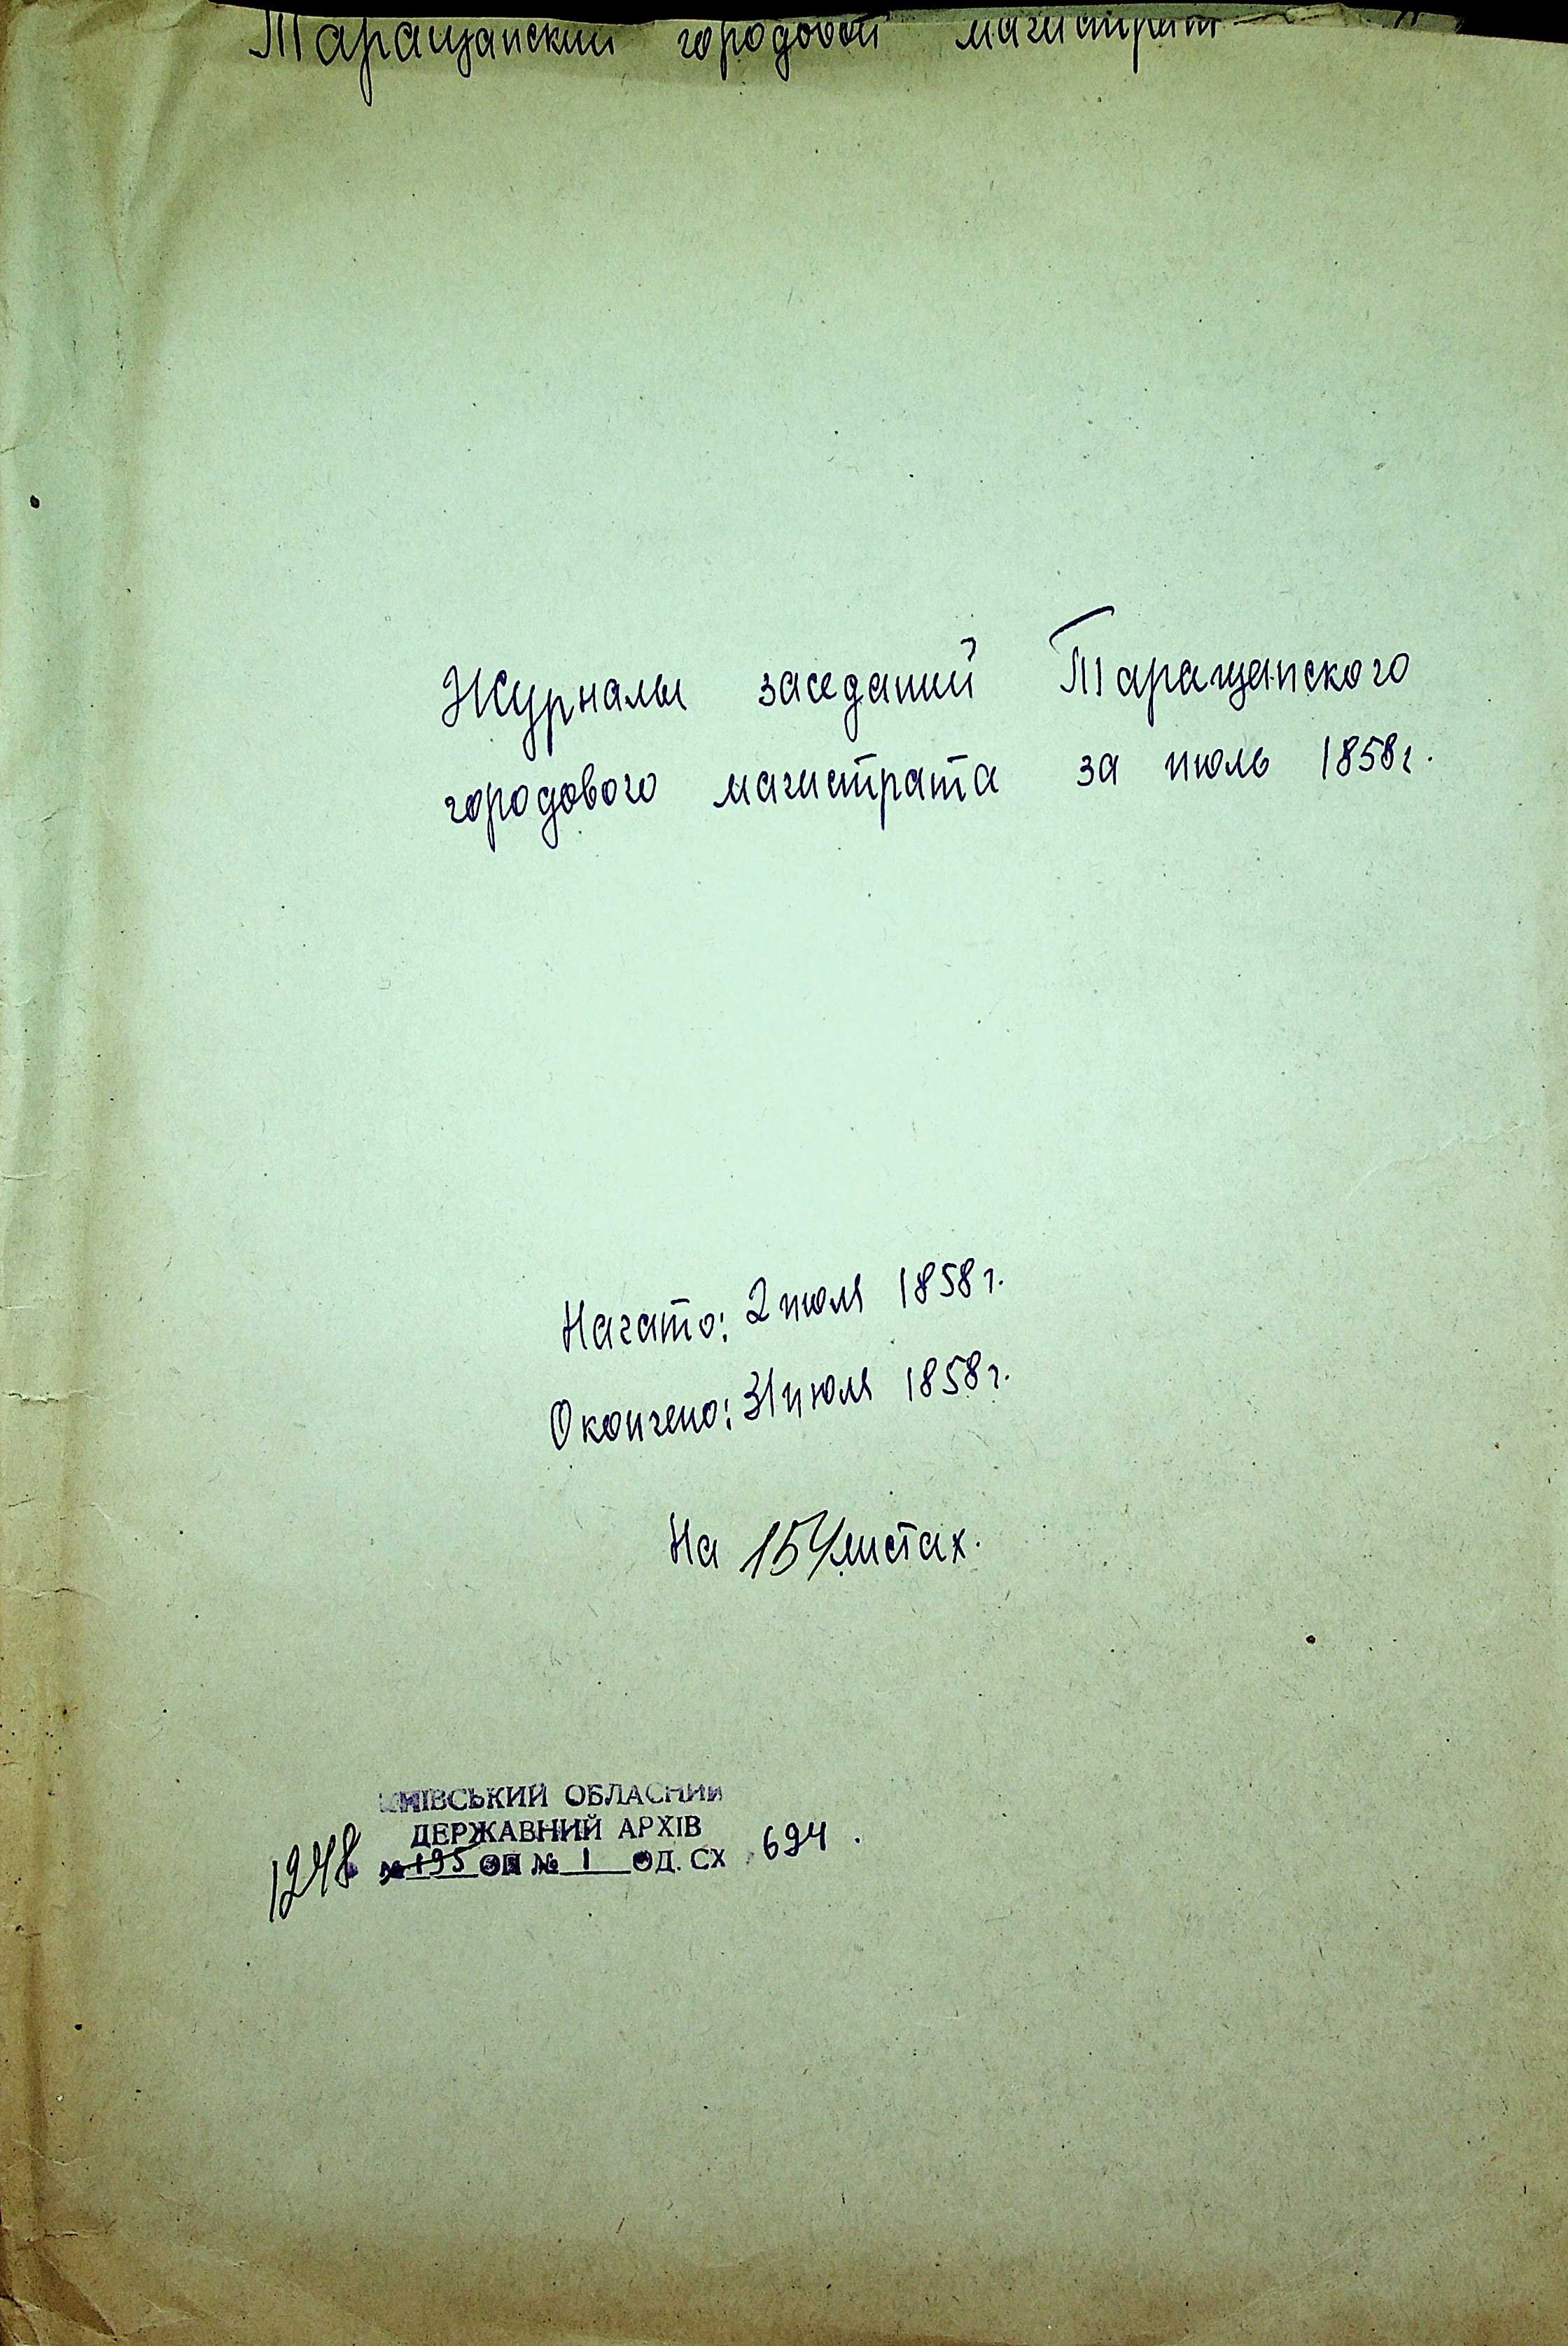 Таращанский городовой магистрат
Журналы заседаний Таращанского
городового магистрата за июль 1858г.
Начато: 2 июля 1858г.
Окончено: 31 июля 1858г.
На 154 листах.
КИЇВСЬКИЙ ОБЛАСНИЙ
ДЕРЖАВНИЙ АРХІВ
1248 № 195 ОП № 1 ОД. СХ 694.